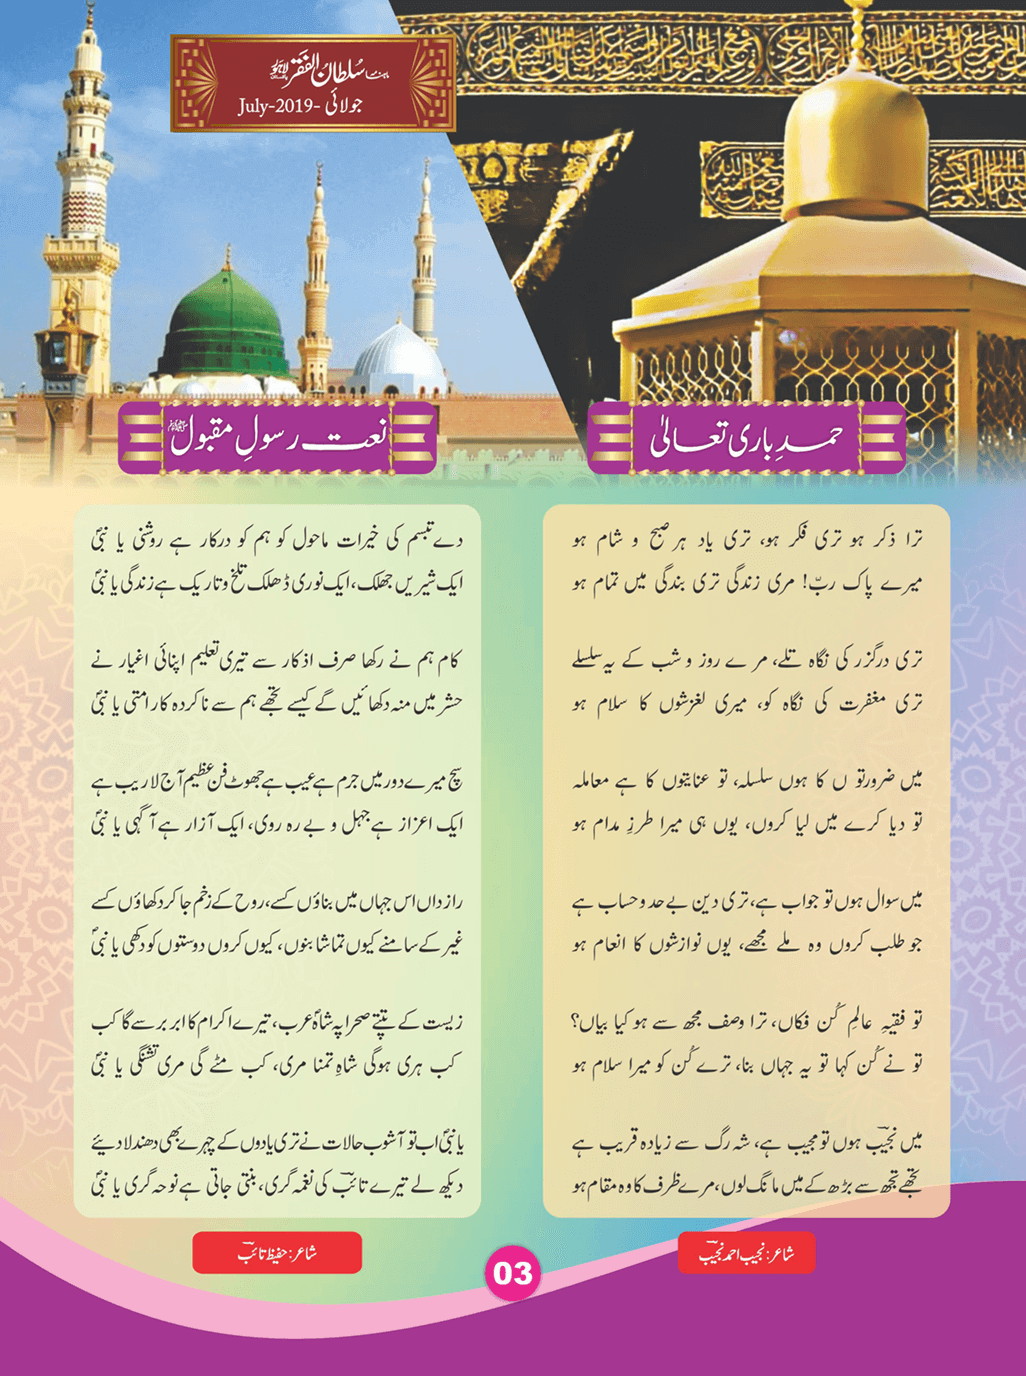 ماہنامہ سُلطان الفَقر لاہور
جولائی -July-2019
حمدِ باری تعالیٰ
ترا ذکر ہو تری فکر ہو، تری یاد ہر صبح و شام ہو
میرے پاک ربّ! مری زندگی تری بندگی میں تمام ہو
تری درگزر کی نگاہ تلے، مرے روز و شب کے یہ سلسلے
تری مغفرت کی نگاہ کو، میری لغزشوں کا سلام ہو
میں ضرورتوں کا ہوں سلسلہ، تو عنایتوں کا ہے معاملہ
تو دیا کرے میں لیا کروں، یوں ہی میرا طرزِ مدام ہو
میں سوال ہوں تو جواب ہے، تری دین بے حد و حساب ہے
جو طلب کروں وہ ملے مجھے، یوں نوازشوں کا انعام ہو
تو فقیہِ عالمِ کُن فکاں، ترا وصف مجھ سے ہو کیا بیاں؟
تو نے کُن کہا تو یہ جہاں بنا، ترے کُن کو میرا سلام ہو
میں نجیبؔ ہوں تو مجیب ہے، شہ رگ سے زیادہ قریب ہے
تجھے تجھ سے بڑھ کے میں مانگ لوں، مرے ظرف کا وہ مقام ہو
شاعر: نجیب احمد نجیبؔ
نعت رسولِ مقبول ﷺ
دے تبسم کی خیرات ماحول کو ہم کو درکار ہے روشنی یا نبیؐ
ایک شیریں جھلک، ایک نوری ڈھلک تلخ و تاریک ہے زندگی یا نبیؐ
کام ہم نے رکھا صرف اذکار سے تیری تعلیم اپنائی اغیار نے
حشر میں منہ دکھائیں گے کیسے تجھے ہم سے ناکردہ کار امتی یا نبیؐ
سچ میرے دور میں جرم ہے عیب ہے جھوٹ فن عظیم آج لاریب ہے
ایک اعزاز ہے جہل و بے رہ روی، ایک آزار ہے آگہی یا نبیؐ
رازداں اس جہاں میں بناؤں کسے، روح کے زخم جا کر دکھاؤں کسے
غیر کے سامنے کیوں تماشا بنوں، کیوں کروں دوستوں کو دکھی یا نبیؐ
زیست کے تپتے صحرا پہ شاہِؐ عرب، تیرے اکرام کا ابر برسے گا کب
کب ہری ہوگی شاہِ تمنا مری، کب مٹے گی مری تشنگی یا نبیؐ
یا نبیؐ اب تو آشوب حالات نے تری یادوں کے چہرے بھی دھندلا دیئے
دیکھ لے تیرے تائبؔ کی نغمہ گری، بنتی جاتی ہے نوحہ گری یا نبیؐ
شاعر: حفیظ تائبؔ
03